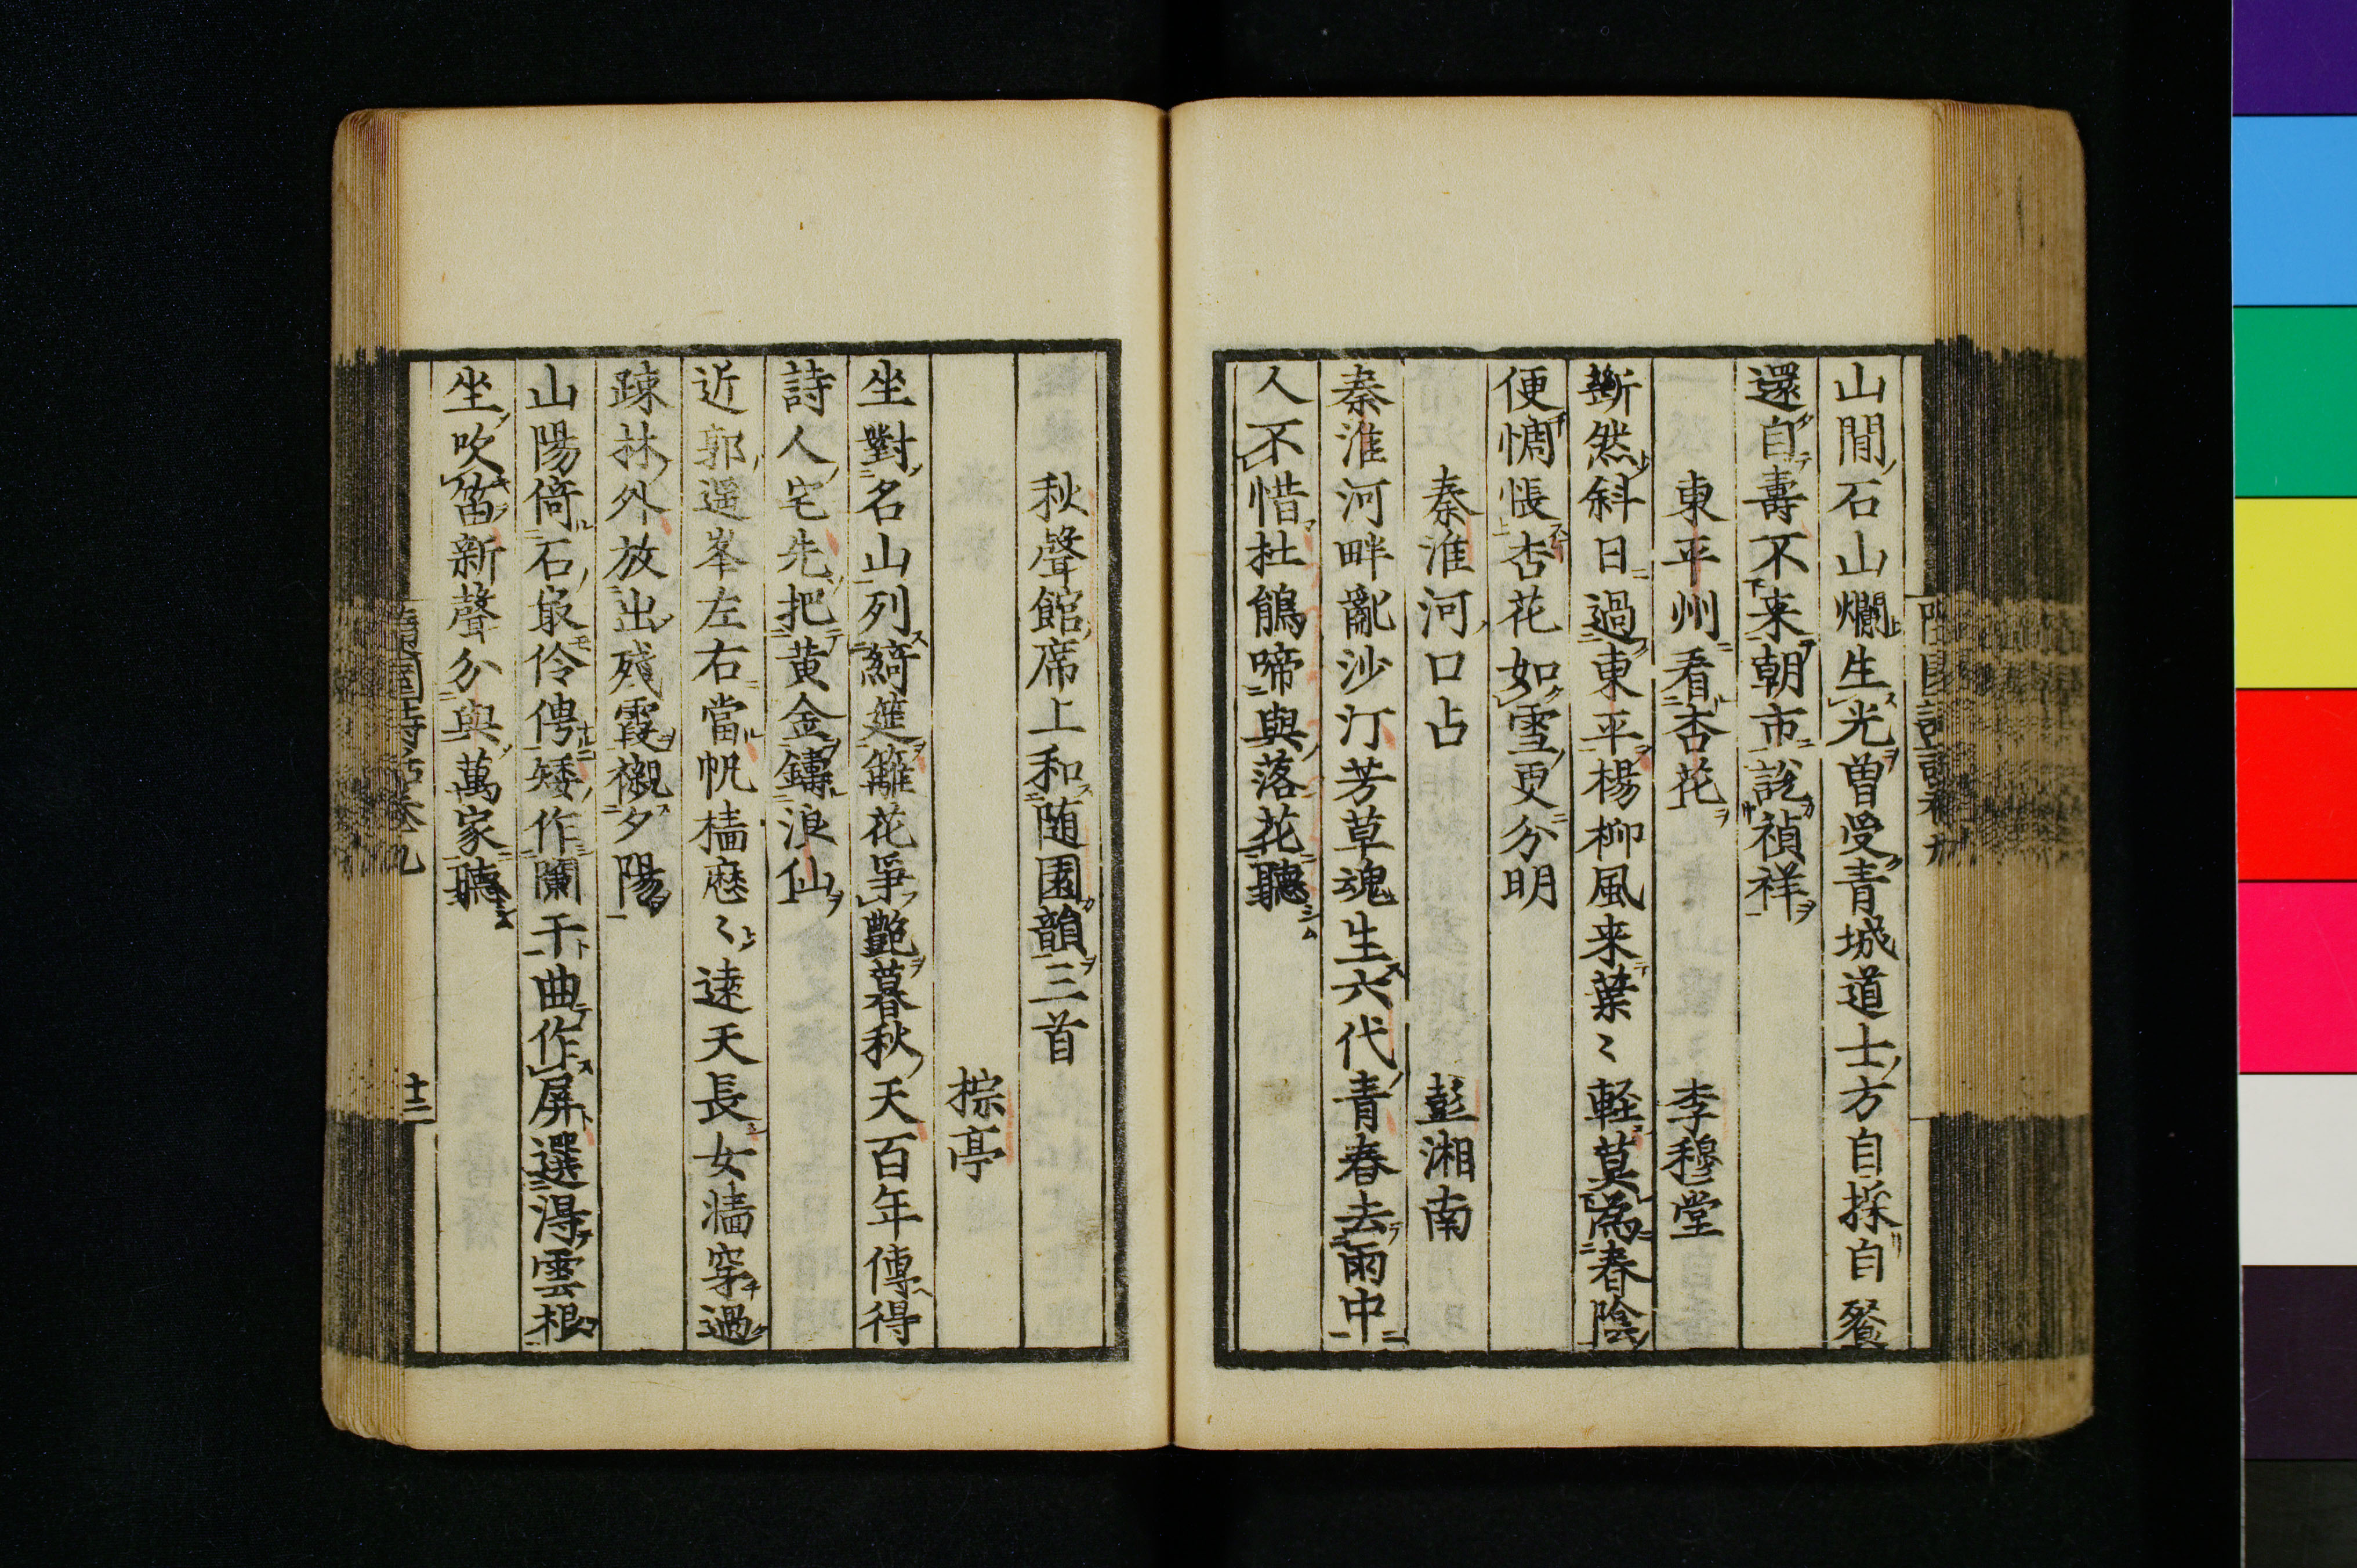 山閒石山爛生光曽受青城道士方自採自餐
還自壽不来朝市說禎祥
東平州看杏花　李穆堂
斷然斜日過東平楊柳風来葉〻軽莫為春陰
便惆悵杏花如雪更分明
秦淮河口占　彭湘南
秦淮河畔亂沙汀芳草魂生六代青春去雨中
人不惜杜鵑啼與落花聽
秋聲館席上和随園韻三首
棕亭
坐對名山列綺筵籬花爭艷暮秋天百年傳得
詩人宅先把黄金鑄浪仙
近郭遥峯左右當帆檣歴〻遠天長女墻穿過
疎林外放出殘霞襯夕陽
山陽倚石最伶俜矮作闌干曲作屏選得雲根
坐吹笛新聲分與萬家聽
隨園詩話卷九
十二